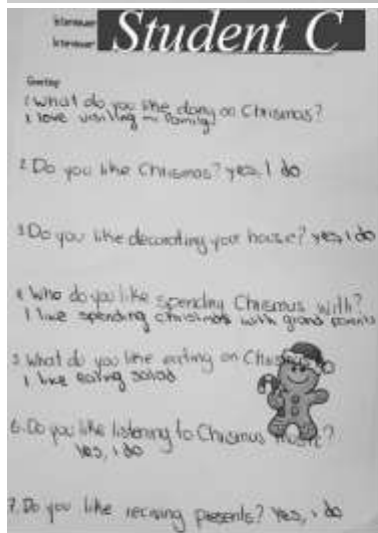 Student C
Interviewer
Interviewer
Greeting:
1. What do you like doing on Chrismas?
I love visiting my family
2. Do you like Chrismas? yes, I do
3. Do you like decorating your house? yes, I do
4. Who do you like spending Chrismus with?
I like spending christmas with grand parents
5. What do you like eating on
I like eating salad
6. Do you like listening to Chrismus music?
Yes, i do
7. Do you like reciving presents? Yes, i do